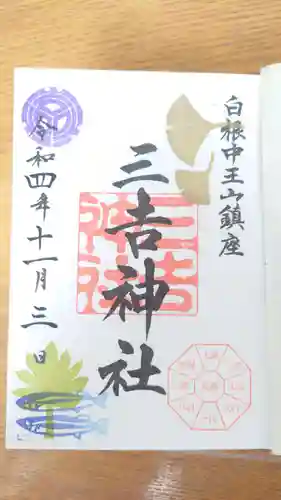 白根中王山鎮座
三吉神社
三吉神社
令和四年十一月三日